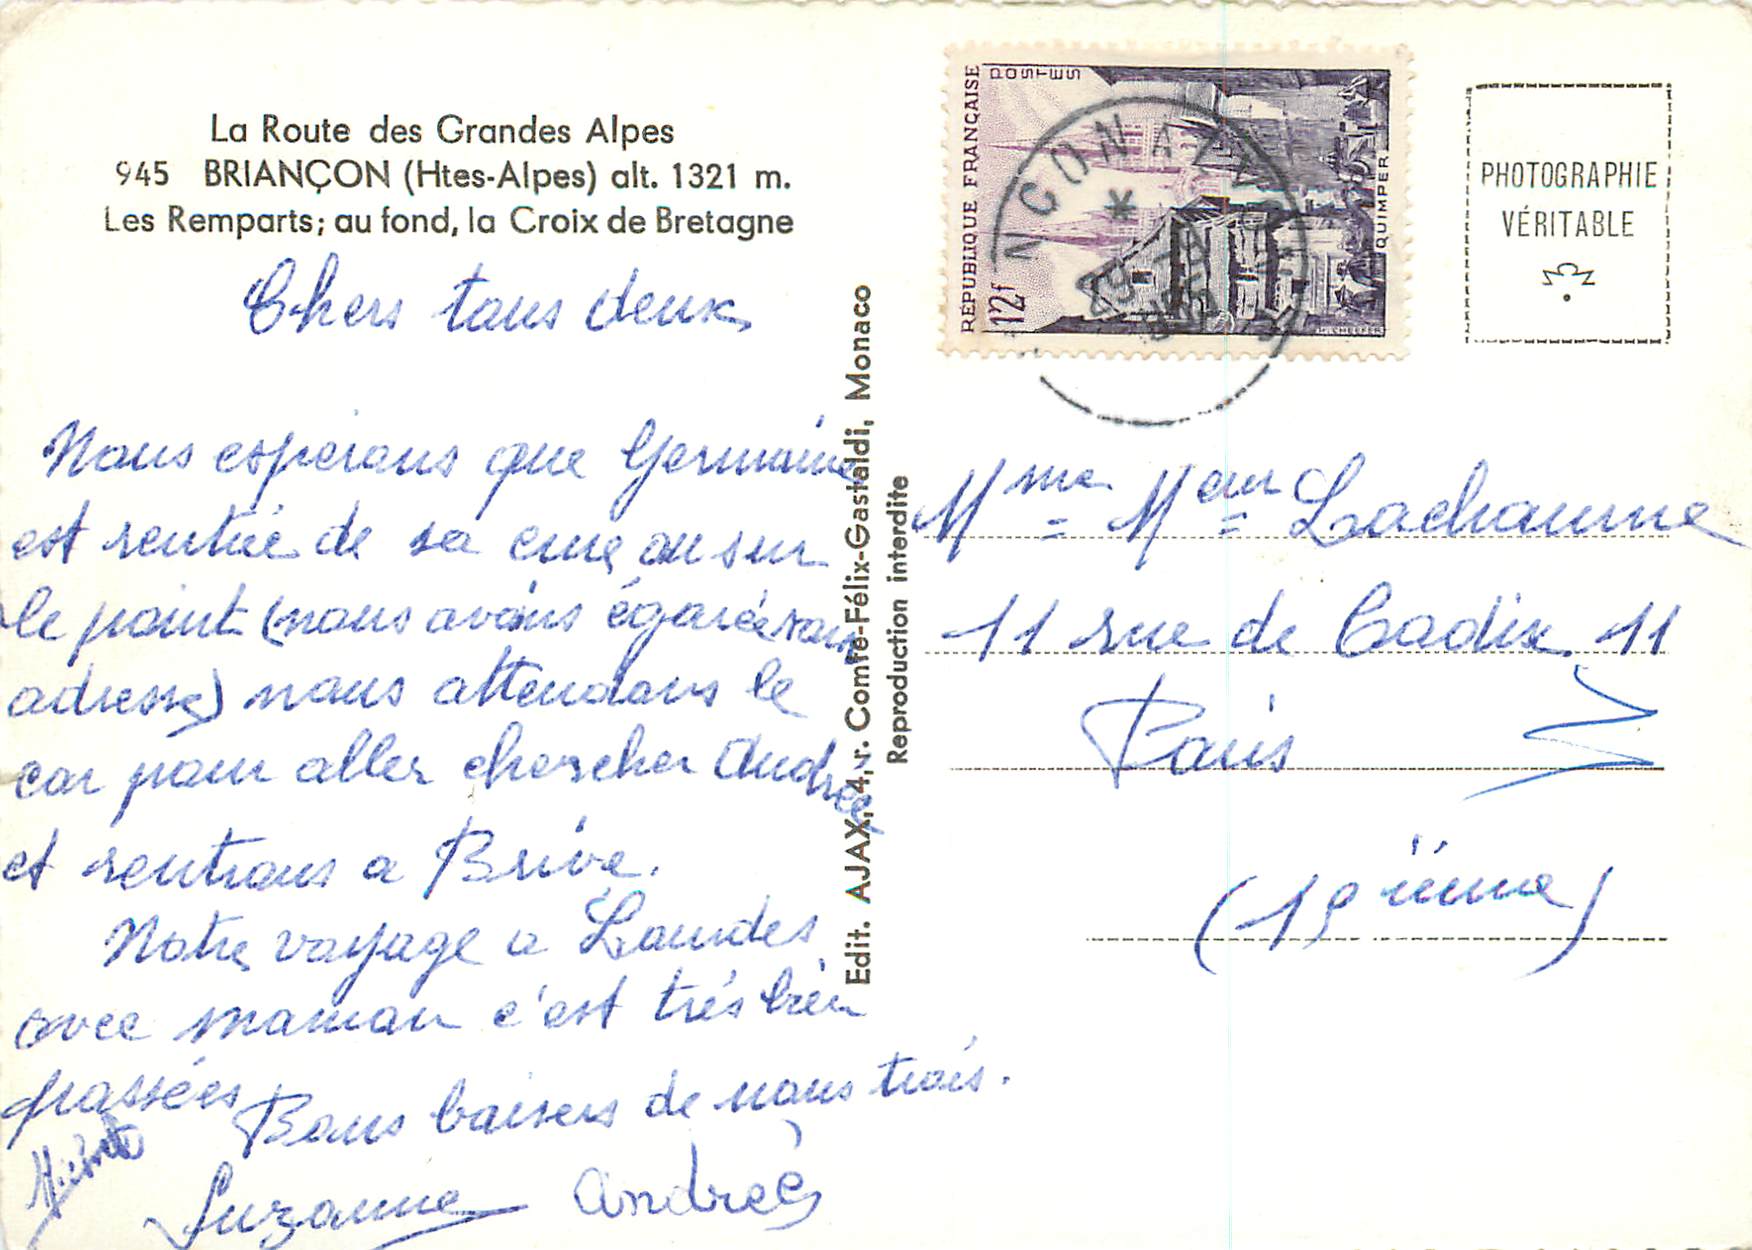 La Route des Grandes Alpes
945 BRIANÇON (Htes-Alpes) alt. 1321 m.
Les Remparts; au fond, la Croix de Bretagne
Chers tous deux
Nous esperons que Germaine
est rentrée de sa cure ou sur
le point (nous avions égarée son
adresse) nous attendons le
car pour aller chercher Andrée
et rentrons a Brive.
Notre voyage a Lourdes
avec maman c'est très bien
passées
Bons baisers de nous trois.
Suzanne Andrée
Edit. AJAX, 4, r. Comte-Félix-Gastaldi, Monaco
Reproduction interdite
RÉPUBLIQUE FRANÇAISE
POSTES
12f
QUIMPER
PHOTOGRAPHIE
VÉRITABLE
Mme = Meur = Lachaume
11 rue de Cadix 11
Paris
(15 ième)